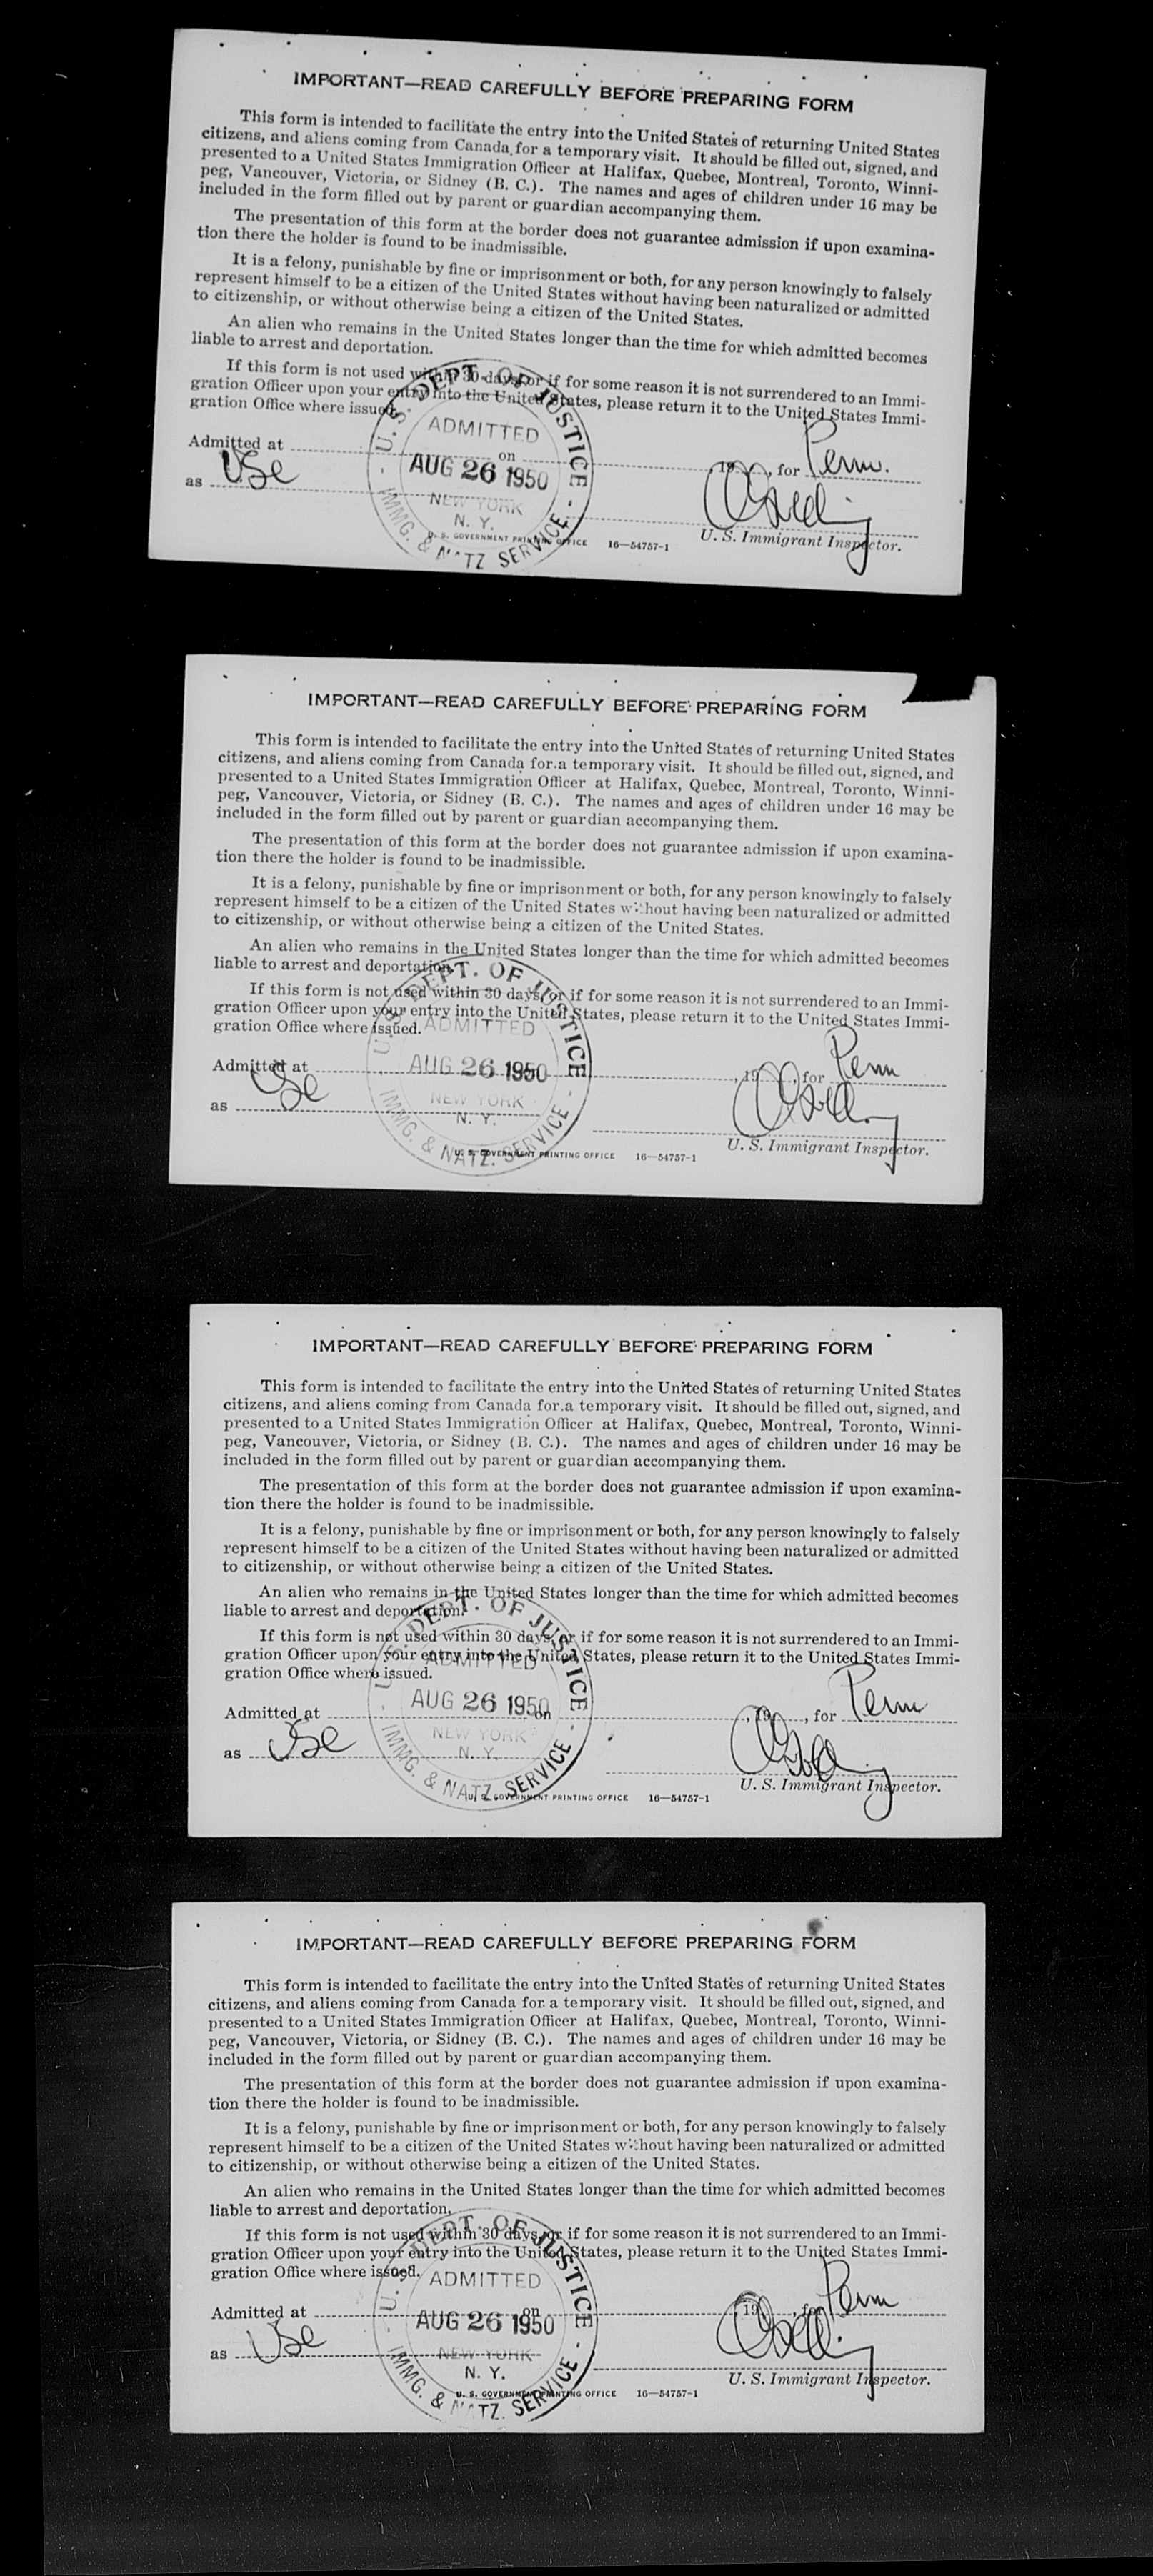 IMPORTANT—READ CAREFULLY BEFORE PREPARING FORM
This form is intended to facilitate the entry into the United States of returning United States
citizens, and aliens coming from Canada for a temporary visit. It should be filled out, signed, and
presented to a United States Immigration Officer at Halifax, Quebec, Montreal, Toronto, Winni-
peg, Vancouver, Victoria, or Sidney (B. C.). The names and ages of children under 16 may be
included in the form filled out by parent or guardian accompanying them.
The presentation of this form at the border does not guarantee admission if upon examina-
tion there the holder is found to be inadmissible.
It is a felony, punishable by fine or imprisonment or both, for any person knowingly to falsely
represent himself to be a citizen of the United States without having been naturalized or admitted
to citizenship, or without otherwise being a citizen of the United States.
An alien who remains in the United States longer than the time for which admitted becomes
liable to arrest and deportation.
If this form is not used within 30 days, or if for some reason it is not surrendered to an Immi-
gration Officer upon your entry into the United States, please return it to the United States Immi-
gration Office where issued.
U. S. DEPT. OF JUSTICE
ADMITTED
Admitted at on , 19 , for Perm.
AUG 26 1950
as USC
NEW YORK
N. Y.
IMMG. & NATZ. SERVICE
U. S. Immigrant Inspector.
U. S. GOVERNMENT PRINTING OFFICE 16—54757-1
IMPORTANT—READ CAREFULLY BEFORE PREPARING FORM
This form is intended to facilitate the entry into the United States of returning United States
citizens, and aliens coming from Canada for a temporary visit. It should be filled out, signed, and
presented to a United States Immigration Officer at Halifax, Quebec, Montreal, Toronto, Winni-
peg, Vancouver, Victoria, or Sidney (B. C.). The names and ages of children under 16 may be
included in the form filled out by parent or guardian accompanying them.
The presentation of this form at the border does not guarantee admission if upon examina-
tion there the holder is found to be inadmissible.
It is a felony, punishable by fine or imprisonment or both, for any person knowingly to falsely
represent himself to be a citizen of the United States without having been naturalized or admitted
to citizenship, or without otherwise being a citizen of the United States.
An alien who remains in the United States longer than the time for which admitted becomes
liable to arrest and deportation.
If this form is not used within 30 days, or if for some reason it is not surrendered to an Immi-
gration Officer upon your entry into the United States, please return it to the United States Immi-
gration Office where issued.
U. S. DEPT. OF JUSTICE
ADMITTED
Admitted at , 19 , for Perm
AUG 26 1950
as USC
NEW YORK
N. Y.
IMMG. & NATZ. SERVICE
U. S. Immigrant Inspector.
U. S. GOVERNMENT PRINTING OFFICE 16—54757-1
IMPORTANT—READ CAREFULLY BEFORE PREPARING FORM
This form is intended to facilitate the entry into the United States of returning United States
citizens, and aliens coming from Canada for a temporary visit. It should be filled out, signed, and
presented to a United States Immigration Officer at Halifax, Quebec, Montreal, Toronto, Winni-
peg, Vancouver, Victoria, or Sidney (B. C.). The names and ages of children under 16 may be
included in the form filled out by parent or guardian accompanying them.
The presentation of this form at the border does not guarantee admission if upon examina-
tion there the holder is found to be inadmissible.
It is a felony, punishable by fine or imprisonment or both, for any person knowingly to falsely
represent himself to be a citizen of the United States without having been naturalized or admitted
to citizenship, or without otherwise being a citizen of the United States.
An alien who remains in the United States longer than the time for which admitted becomes
liable to arrest and deportation.
If this form is not used within 30 days, or if for some reason it is not surrendered to an Immi-
gration Officer upon your entry into the United States, please return it to the United States Immi-
gration Office where issued.
U. S. DEPT. OF JUSTICE
ADMITTED
Admitted at on , 19 , for Perm
AUG 26 1950
as USC
NEW YORK
N. Y.
IMMG. & NATZ. SERVICE
U. S. Immigrant Inspector.
U. S. GOVERNMENT PRINTING OFFICE 16—54757-1
IMPORTANT—READ CAREFULLY BEFORE PREPARING FORM
This form is intended to facilitate the entry into the United States of returning United States
citizens, and aliens coming from Canada for a temporary visit. It should be filled out, signed, and
presented to a United States Immigration Officer at Halifax, Quebec, Montreal, Toronto, Winni-
peg, Vancouver, Victoria, or Sidney (B. C.). The names and ages of children under 16 may be
included in the form filled out by parent or guardian accompanying them.
The presentation of this form at the border does not guarantee admission if upon examina-
tion there the holder is found to be inadmissible.
It is a felony, punishable by fine or imprisonment or both, for any person knowingly to falsely
represent himself to be a citizen of the United States without having been naturalized or admitted
to citizenship, or without otherwise being a citizen of the United States.
An alien who remains in the United States longer than the time for which admitted becomes
liable to arrest and deportation.
If this form is not used within 30 days, or if for some reason it is not surrendered to an Immi-
gration Officer upon your entry into the United States, please return it to the United States Immi-
gration Office where issued.
U. S. DEPT. OF JUSTICE
ADMITTED
Admitted at on , 19 , for Perm
AUG 26 1950
as USC
NEW YORK
N. Y.
IMMG. & NATZ. SERVICE
U. S. Immigrant Inspector.
U. S. GOVERNMENT PRINTING OFFICE 16—54757-1